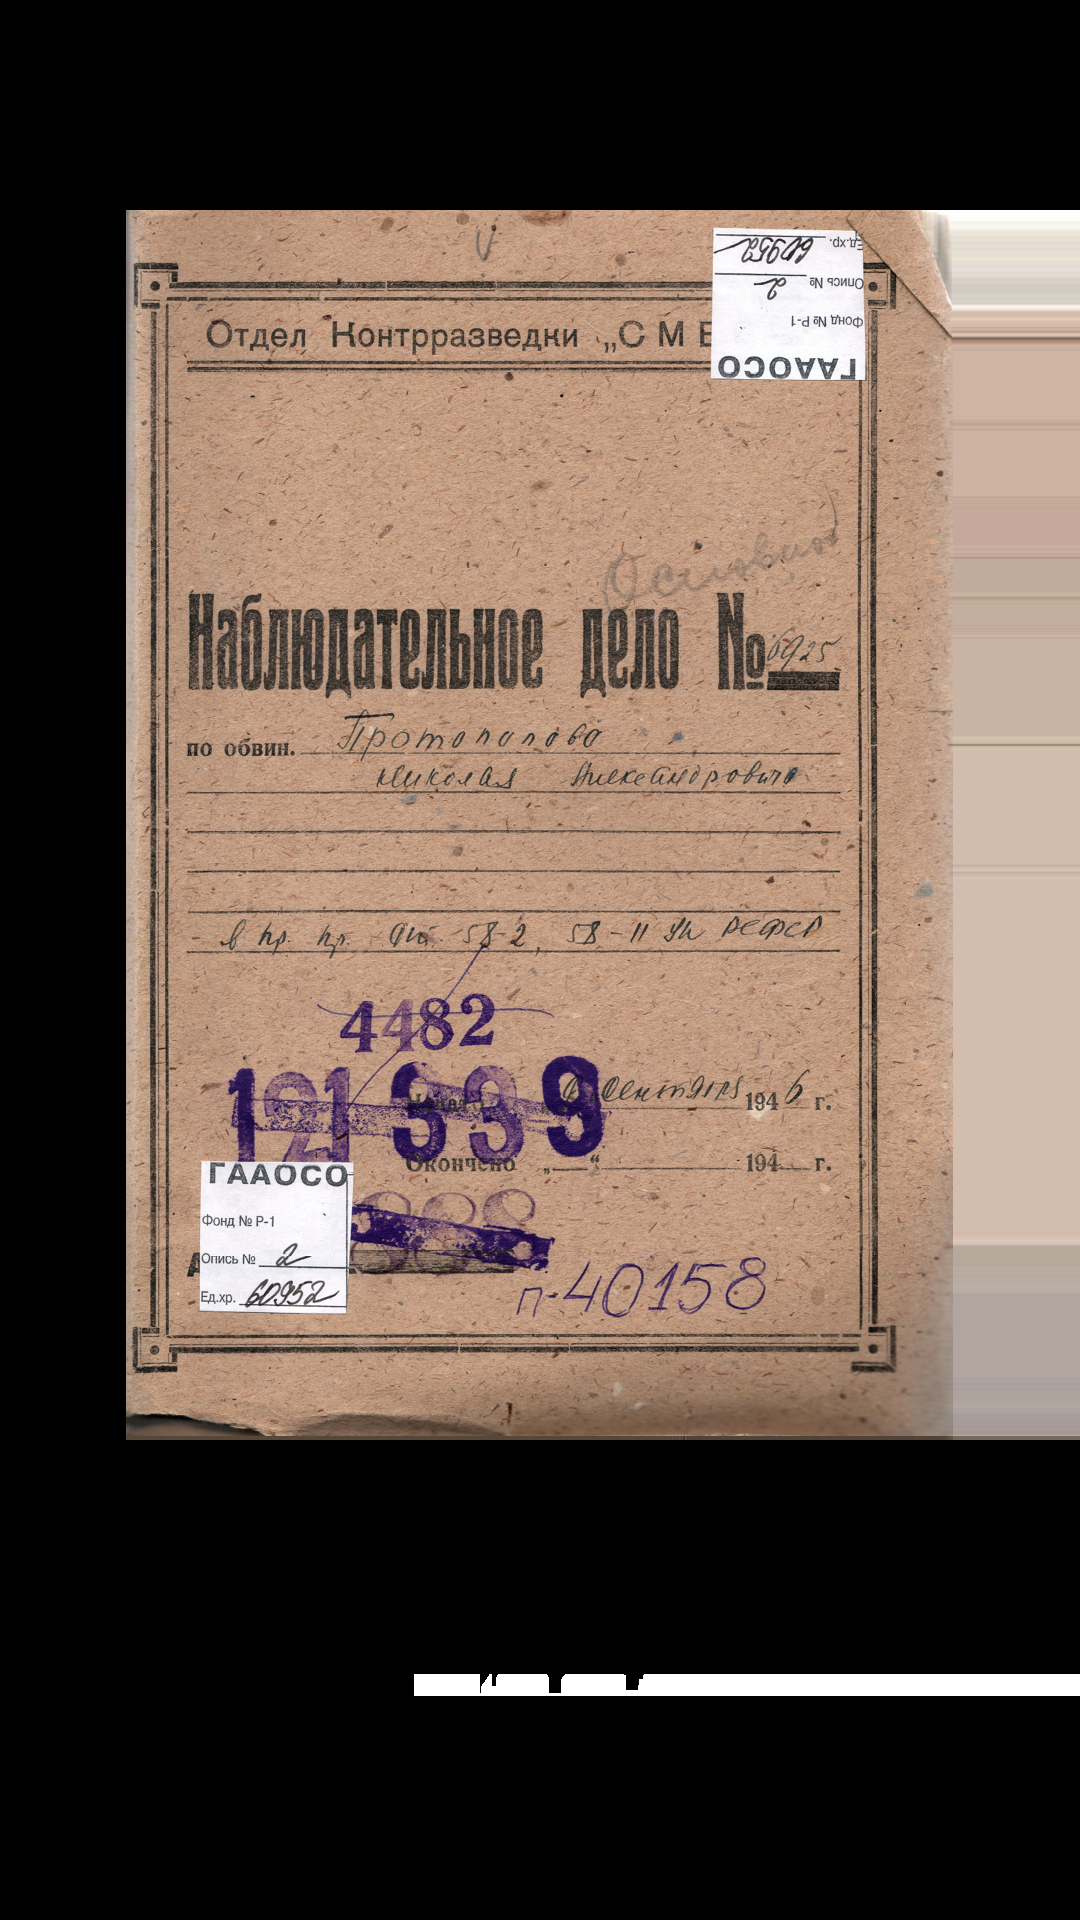 Ед.хр. 60952
Опись № 2
Фонд № Р-1
ГААОСО
Отдел Контрразведки „СМЕ
Наблюдательное дело № 6925
по обвин. Протопопова
Николая Александровича
в пр. пр. ст. 58-2, 58-11 УК РСФСР
4482
121339
Сентября 1946 г.
Окончено „__“ 194 г.
ГААОСО
Фонд № Р-1
Опись № 2
Ед.хр. 60952
п-40158